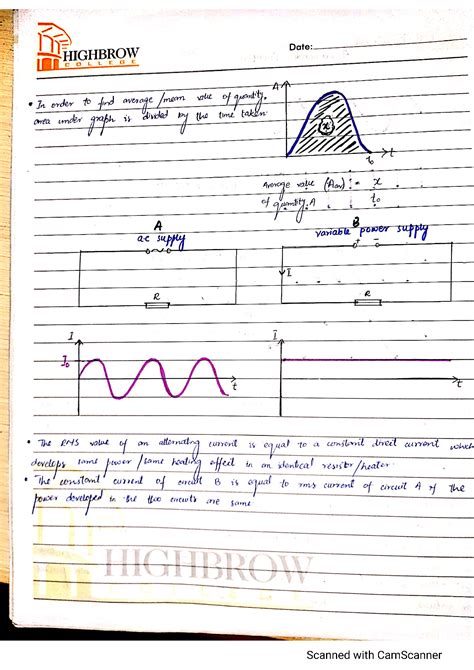 HIGHBROW
COLLEGE
Date:
• In order to find average /mean value of quantity,
area under graph is divided by the time taken
A
x
t₀
t
Average value (Aav) = x
of quantity A t₀
A
ac supply
B
variable power supply
+ -
I
R
R
I
I₀
t
I
t
• The RMS value of an alternating current is equal to a constant direct current which
develops same power /same heating effect in an identical resistor/heater.
• The constant current of circuit B is equal to rms current of circuit A if the
power developed in the two circuits are same
HIGHBROW
Scanned with CamScanner